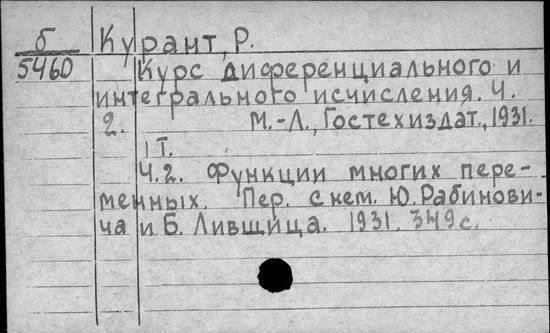 б Курант, Р.
5460 Курс диференциального и
интегрального исчисления. Ч.
2. М.-Л., Гостехиздат., 1931.
1 т.
Ч.2. Функции многих пере-
менных. Пер. с нем. Ю. Рабинови-
ча и Б. Лившица. 1931. 349 с.